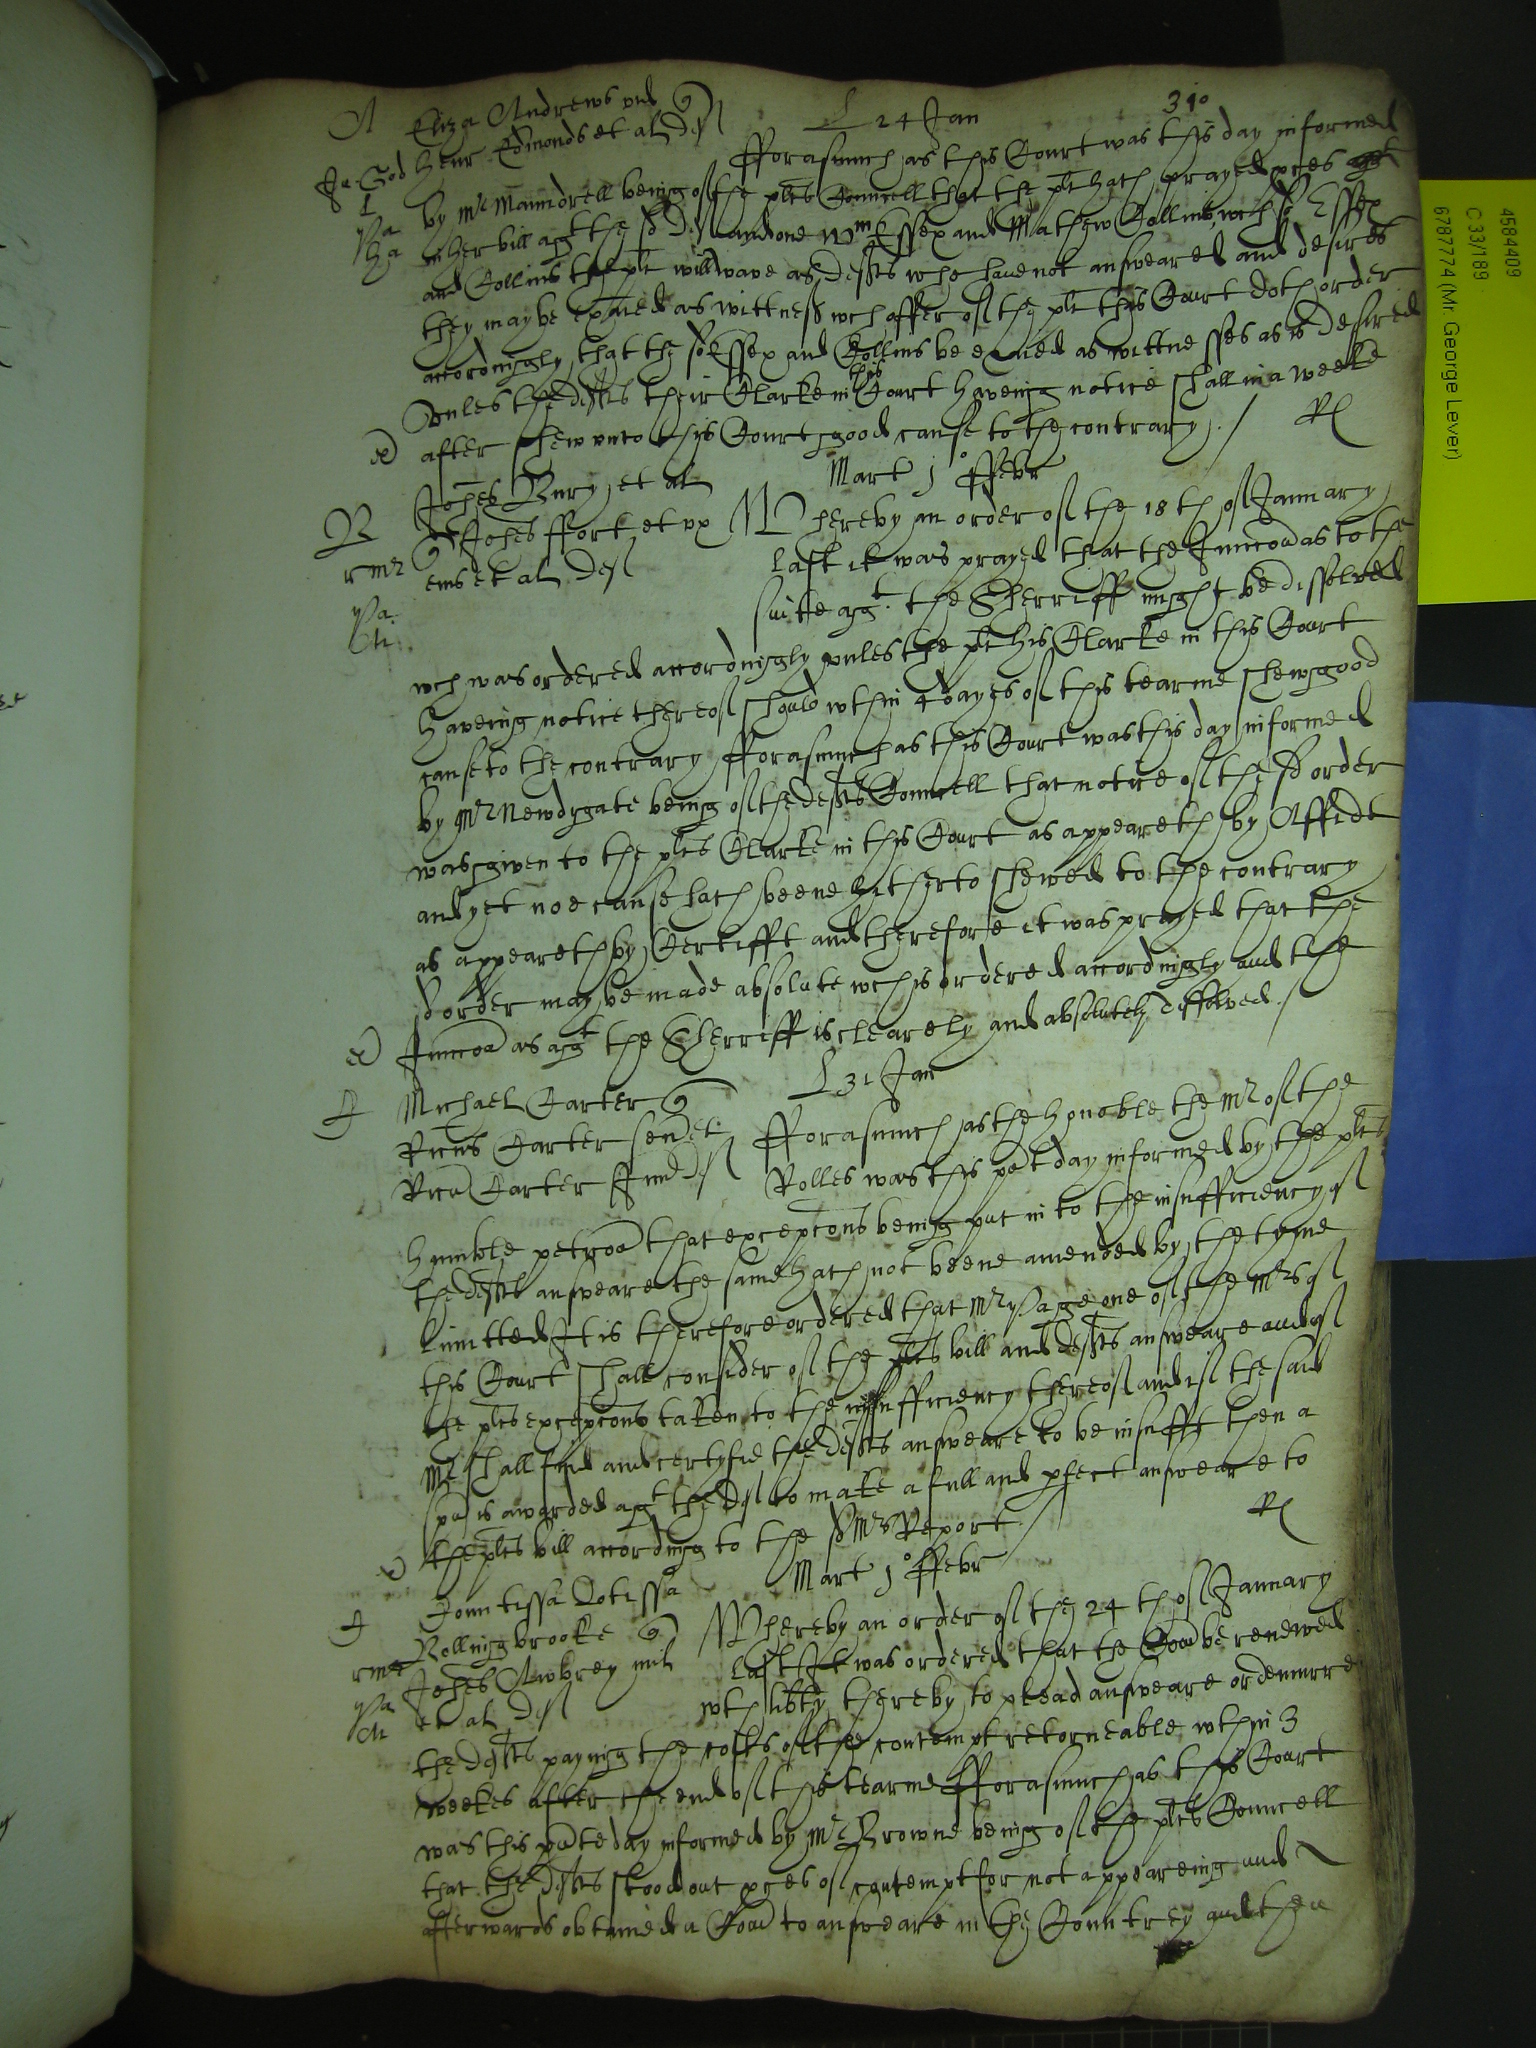 310
A Eliza Andrews vid Q
L 24 Jan
Ja: God Henr Edmonds et al Def
fforasmuch as this Court was this day informed
by Mr Maundrell being of the plts Councell that the plt hath prayed pces
in her bill agt the sd Def and one Wm Essex and Mathew Collins, wch sd Essex
and Collins the plt will wave as defts who have not answeared and desires
they may be exaied as wittness wch offer of the plt this Court doth order
accordingly, that the sd Essex and Collins be exaied as wittnesses as is desired
Vnles the defts their Clarke in this Court haveing notice shall in a weeke
ex after shew vnto this Court good cause to the contrary. / Rl
Mart j° ffebr
B Johes Bury et al
Q Johes ffort et vx
rmr eius et al Def
Whereby an order of the 18th of January
last it was prayed that the Iniuncon as to the
suite agt. the Sherriff might be dissolved
wch was ordered accordingly vnles the plt his Clarke in this Court
haveing notice thereof should wthin 4 dayes of this tearme shew good
cause to the contrary fforasmuch as this Court was this day informed
by Mr Newdygate being of the defts Councell that notice of the sd order
was given to the plts Clarke in this Court as appeareth by Affidt
and yet noe cause hath beene hitherto shewed to the contrary
as appeareth by Certifft and therefore it was prayed that the
sd order may be made absolute wch is ordered accordingly and the
ex Iniuncon as agt the Sherriff is clearely and absolutely dissolved. /
L 31 Jan
Michael Carter Q
Ricus Carter sen et
Ricu Carter Jun Def
fforasmuch as the honoble the Mr of the
Rolles was this psent day informed by the plts
humble peticon that excepcons being put in to the insufficiency of
the defts answeare the same hath not beene amended by the tyme
limitted It is therefore ordered that Mr Page one of the Mrs of
this Court shall consider of the plts bill and defts answeare and of
the plts excepcons taken to the insufficiency thereof and if the said
Mr shall find and certyfie the defts answeare to be insufft then a
spa is awarded agt the Def to make a full and pfect answeare to
ex the plts bill according to the sd Mrs Report / Rl
Mart j° ffebr
Comitissa Dotissa
Bollingbrooke Q
rmr Johes Awbrey mil
et al Def
Whereby an order of the 24th of January
last It was ordered that the Com be renewed
wth libty thereby to plead answeare or demurre
the defts paying the costs of the contempt retorneable wthin 3
weekes after the end of this tearme fforasmuch as this Court
was this psente day informed by Mr Browne being of the plts Councell
that the defts stood out pces of contempt for not appeareing and
afterwards obtained a Com to answeare in the Countrey and then
4584409
C 33/189
6787774 (Mr George Lever)